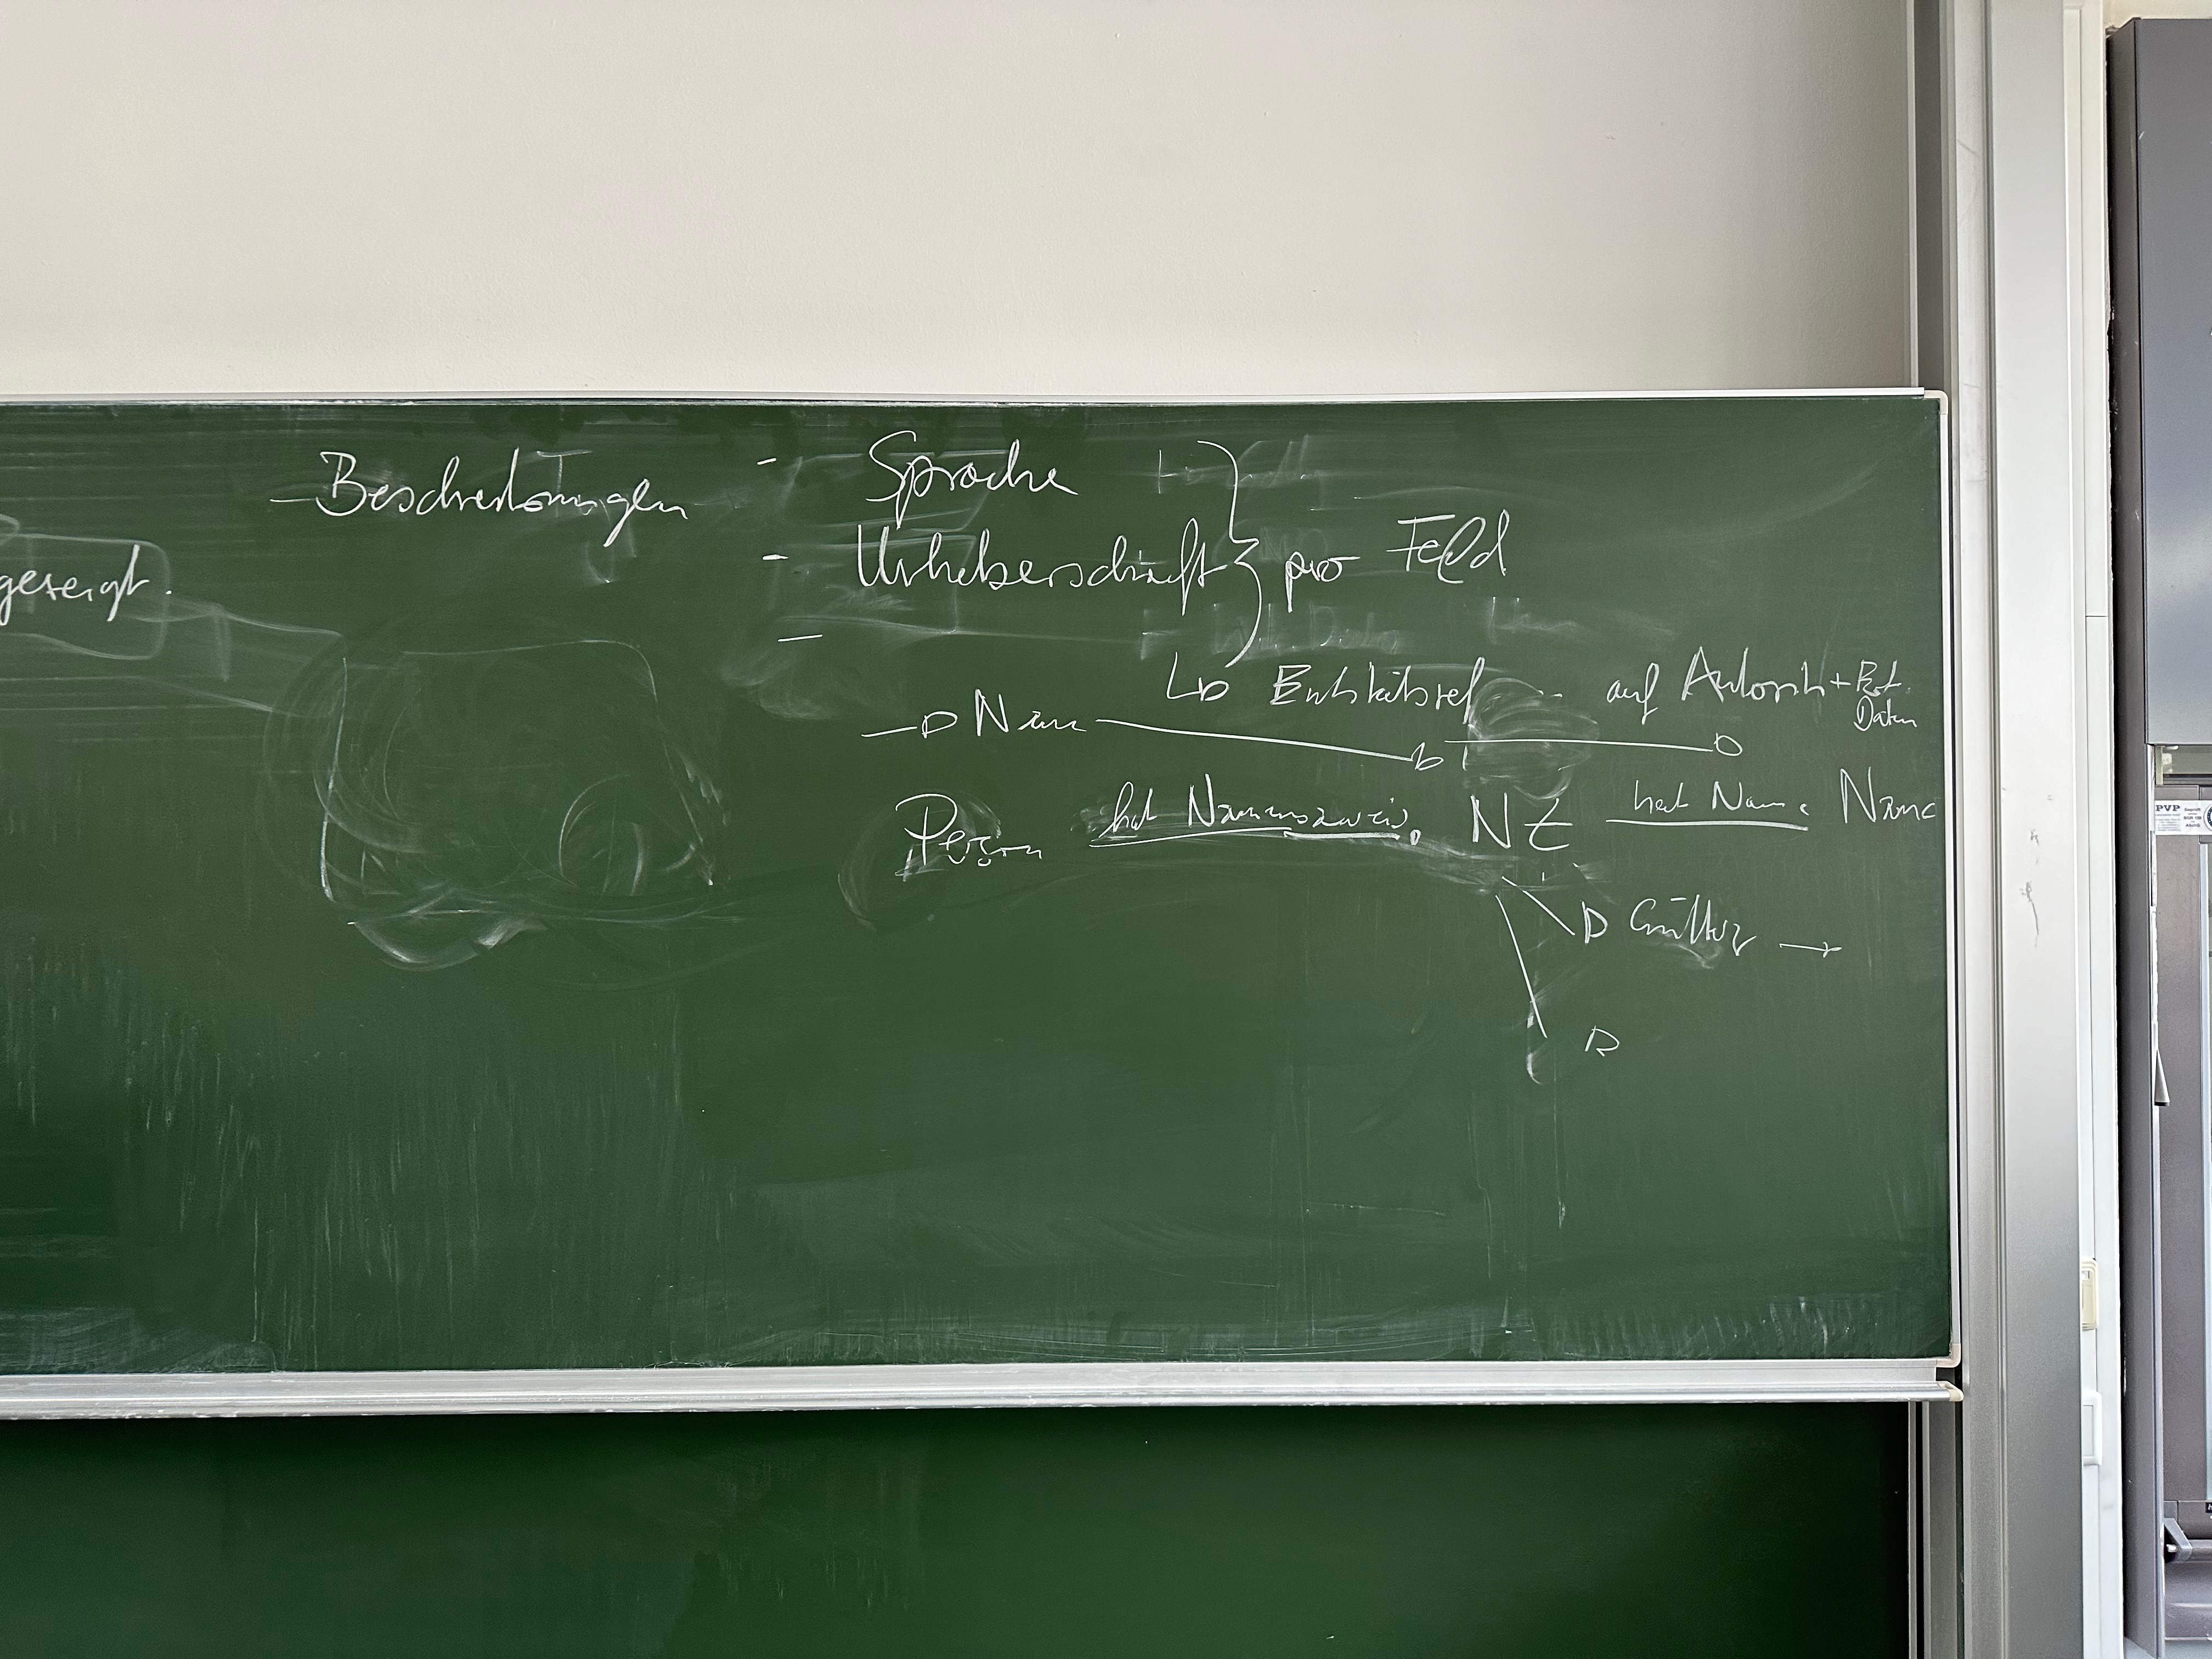 gezeigt.
- Beschreibungen
- Sprache
- Urheberschaft } pro Feld
-
↳ Entitätsref auf + Daten
→ Name →
Person hat Namenszuweis. NZ hat Name Name
PVP